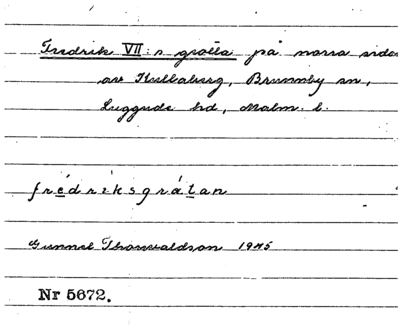 Fredrik VII:s grotta på norra sidan
av Kullaberg, Brunnby sn,
Luggude hd, Malm. l.
frédriksgråtan
Gunnel Thorwaldson 1945
Nr 5672.